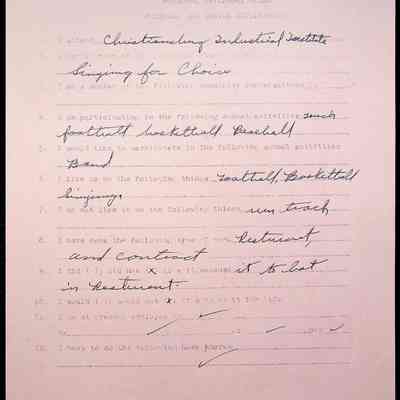 I attend Christiansburg Industrial Institute
Singing for Choice
3. I am a member of the following community organizations
4. I am participating in the following school activities such
football basketball Baseball
5. I would like to participate in the following school activities
Band
6. I like to do the following things football, Basketball
Singing.
7. I do not like to do the following things run track
8. I have done the following type of work Resturant,
and contract
9. I did ( ) did not x like it because it to hot
in Resturant.
10. I would ( ) would not x like to do it for life
11. I am at present employed by
12. I have to do the following home chores